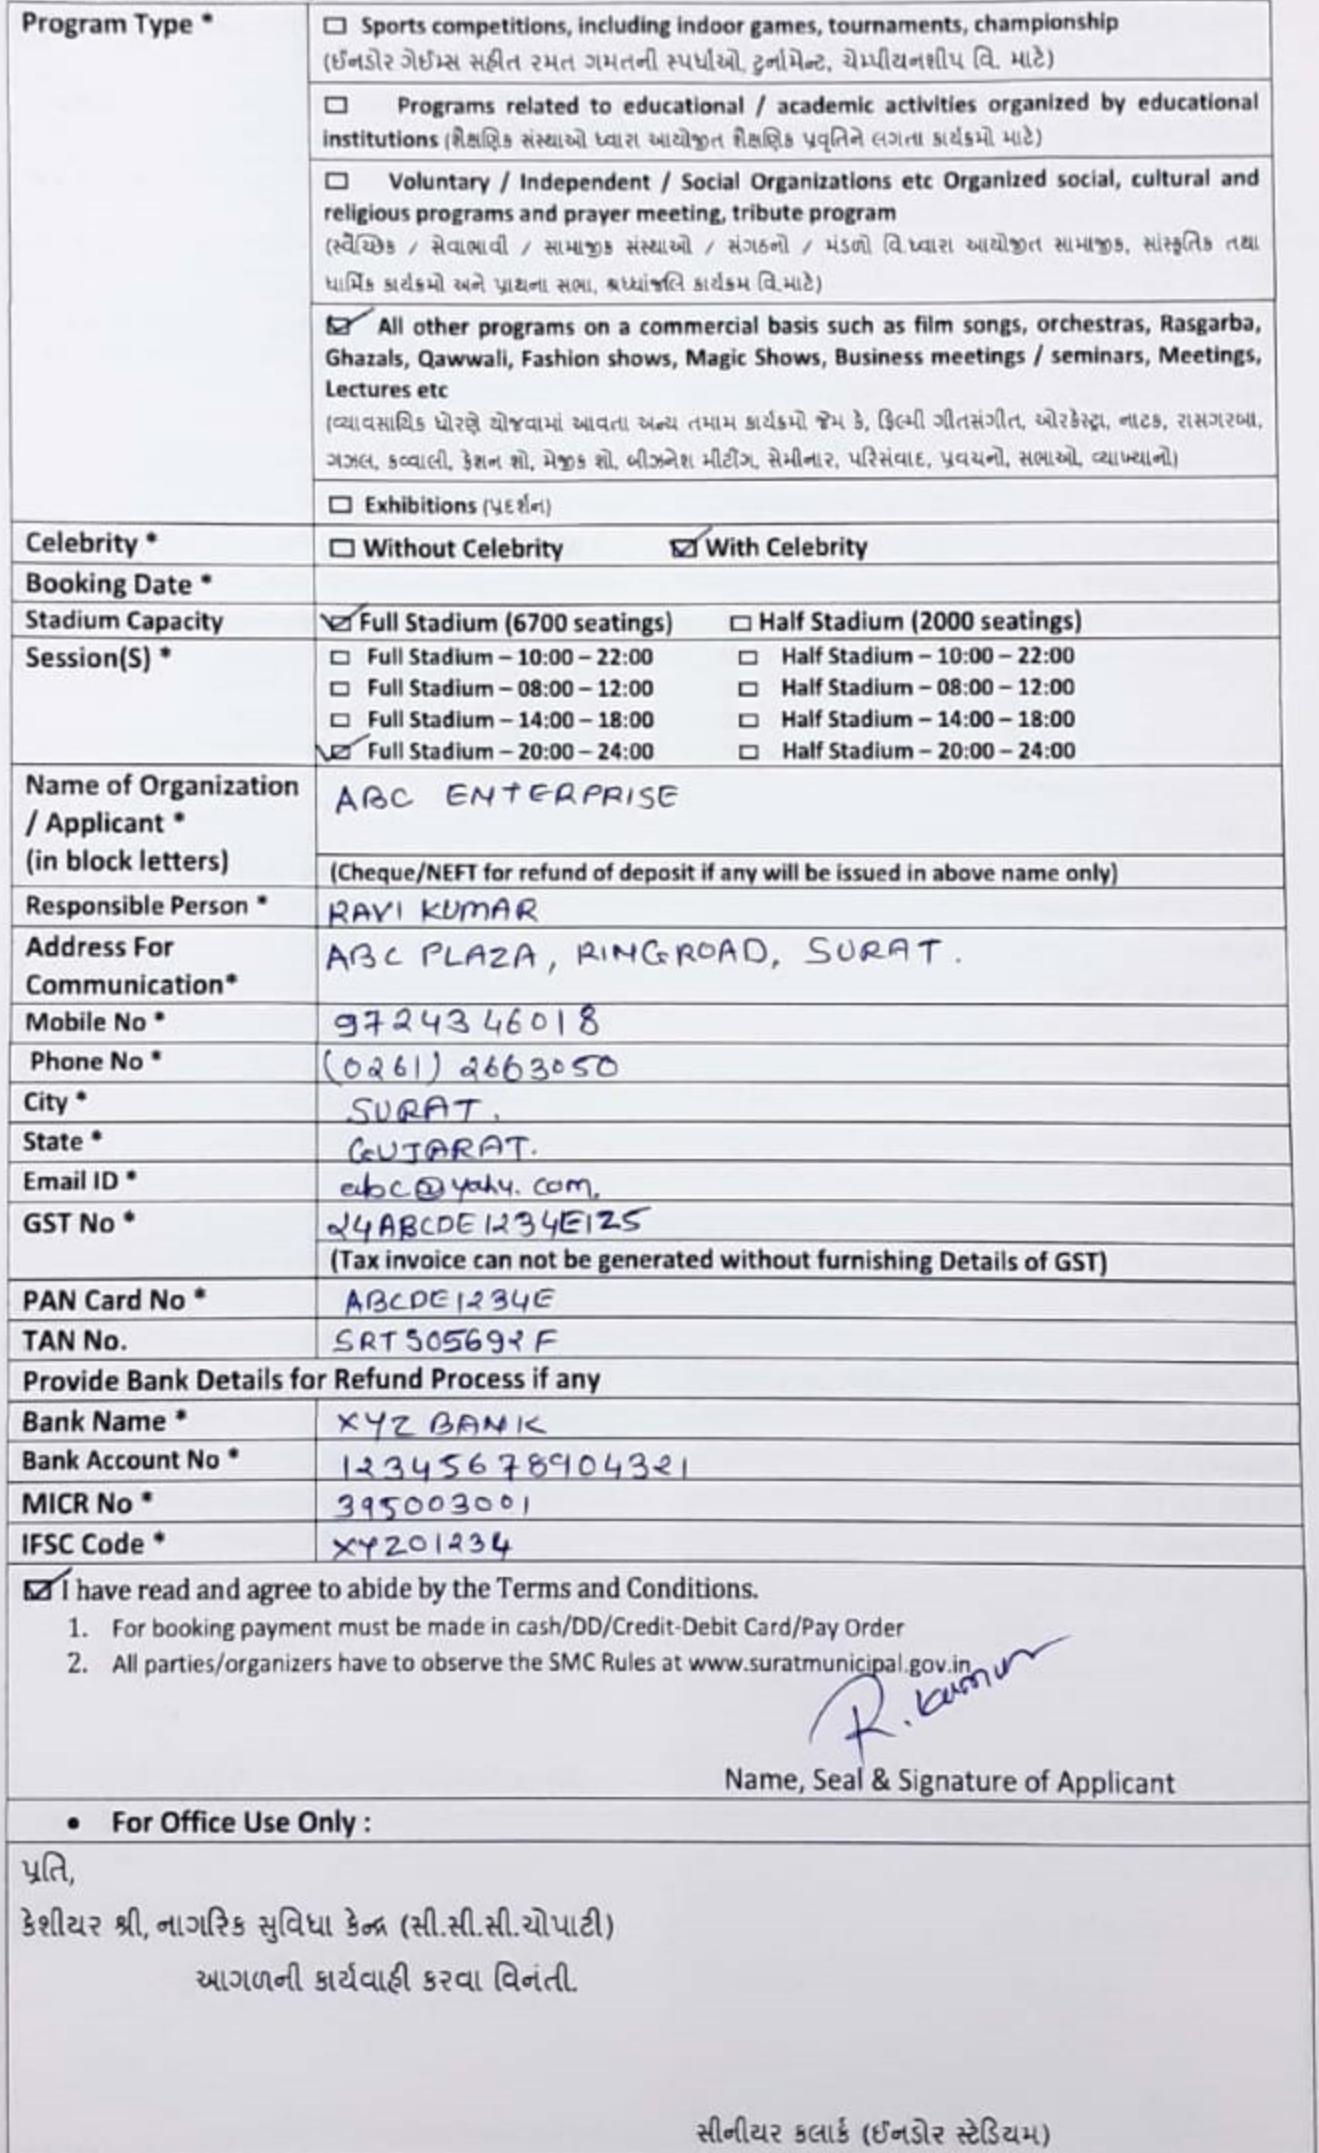 Program Type *
☐ Sports competitions, including indoor games, tournaments, championship
(ઈનડોર ગેઈમ્સ સહીત રમત ગમતની સ્પર્ધાઓ, ટુર્નામેન્ટ, ચેમ્પીયનશીપ વિ. માટે)
☐ Programs related to educational / academic activities organized by educational
institutions (શૈક્ષણિક સંસ્થાઓ ધ્વારા આયોજીત શૈક્ષણિક પ્રવૃતિને લગતા કાર્યક્રમો માટે)
☐ Voluntary / Independent / Social Organizations etc Organized social, cultural and
religious programs and prayer meeting, tribute program
(સ્વૈચ્છિક / સેવાભાવી / સામાજીક સંસ્થાઓ / સંગઠનો / મંડળો વિ.ધ્વારા આયોજીત સામાજીક, સાંસ્કૃતિક તથા
ધાર્મિક કાર્યક્રમો અને પ્રાથના સભા, શ્રધ્ધાંજલિ કાર્યક્રમ વિ.માટે)
☑ All other programs on a commercial basis such as film songs, orchestras, Rasgarba,
Ghazals, Qawwali, Fashion shows, Magic Shows, Business meetings / seminars, Meetings,
Lectures etc
(વ્યાવસાયિક ધોરણે યોજવામાં આવતા અન્ય તમામ કાર્યક્રમો જેમ કે, ફિલ્મી ગીતસંગીત, ઓરકેસ્ટ્રા, નાટક, રાસગરબા,
ગઝલ, કવ્વાલી, ફેશન શો, મેજીક શો, બીઝનેશ મીટીંગ, સેમીનાર, પરિસંવાદ, પ્રવચનો, સભાઓ, વ્યાખ્યાનો)
☐ Exhibitions (પ્રદર્શન)
Celebrity * ☐ Without Celebrity ☑ With Celebrity
Booking Date *
Stadium Capacity ☑ Full Stadium (6700 seatings) ☐ Half Stadium (2000 seatings)
Session(S) * ☐ Full Stadium – 10:00 – 22:00 ☐ Half Stadium – 10:00 – 22:00
☐ Full Stadium – 08:00 – 12:00 ☐ Half Stadium – 08:00 – 12:00
☐ Full Stadium – 14:00 – 18:00 ☐ Half Stadium – 14:00 – 18:00
☑ Full Stadium – 20:00 – 24:00 ☐ Half Stadium – 20:00 – 24:00
Name of Organization
/ Applicant *
(in block letters)
ABC ENTERPRISE
(Cheque/NEFT for refund of deposit if any will be issued in above name only)
Responsible Person * RAVI KUMAR
Address For
Communication*
ABC PLAZA, RINGROAD, SURAT.
Mobile No * 9724346018
Phone No * (0261) 2663050
City * SURAT.
State * GUJARAT.
Email ID * abc@yahy.com,
GST No * 24ABCDE1234E1Z5
(Tax invoice can not be generated without furnishing Details of GST)
PAN Card No * ABCDE1234E
TAN No. SRTS05692F
Provide Bank Details for Refund Process if any
Bank Name * XYZ BANK
Bank Account No * 12345678904321
MICR No * 395003001
IFSC Code * XYZ01234
☑ I have read and agree to abide by the Terms and Conditions.
1. For booking payment must be made in cash/DD/Credit-Debit Card/Pay Order
2. All parties/organizers have to observe the SMC Rules at www.suratmunicipal.gov.in
R. Kumar
Name, Seal & Signature of Applicant
• For Office Use Only :
પ્રતિ,
કેશીયર શ્રી, નાગરિક સુવિધા કેન્દ્ર (સી.સી.સી.ચોપાટી)
આગળની કાર્યવાહી કરવા વિનંતી.
સીનીયર કલાર્ક (ઈનડોર સ્ટેડિયમ)